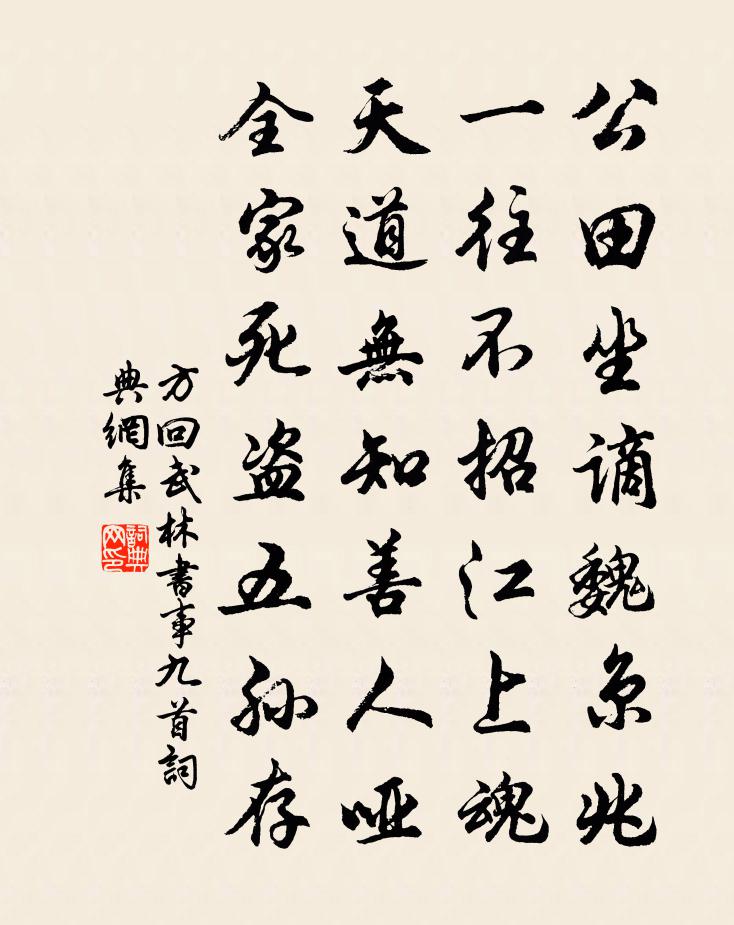 公田坐謫魏京兆
一往不招江上魂
天道無知善人啞
全家死盗五孙存
方回武林書事九首詞
典網集
詞典
网印